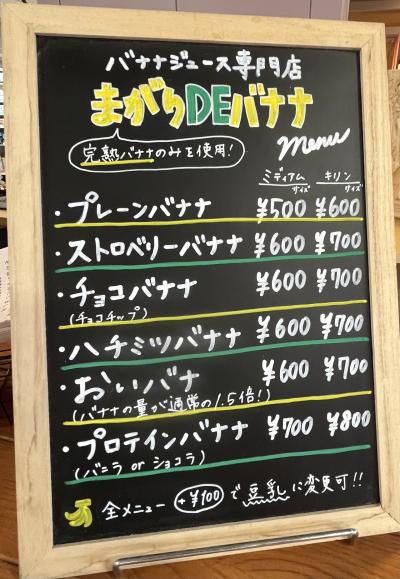 バナナジュース専門店
まがらDEバナナ
完熟バナナのみを使用!
Menu
ミディアムサイズ キリンサイズ
・プレーンバナナ ¥500 ¥600
・ストロベリーバナナ ¥600 ¥700
・チョコバナナ ¥600 ¥700
(チョコチップ)
・ハチミツバナナ ¥600 ¥700
・おいバナナ ¥600 ¥700
(バナナの量が通常の1.5倍!)
・プロテインバナナ ¥700 ¥800
(バニラ or ショコラ)
全メニュー +¥100 で豆乳に変更可!!